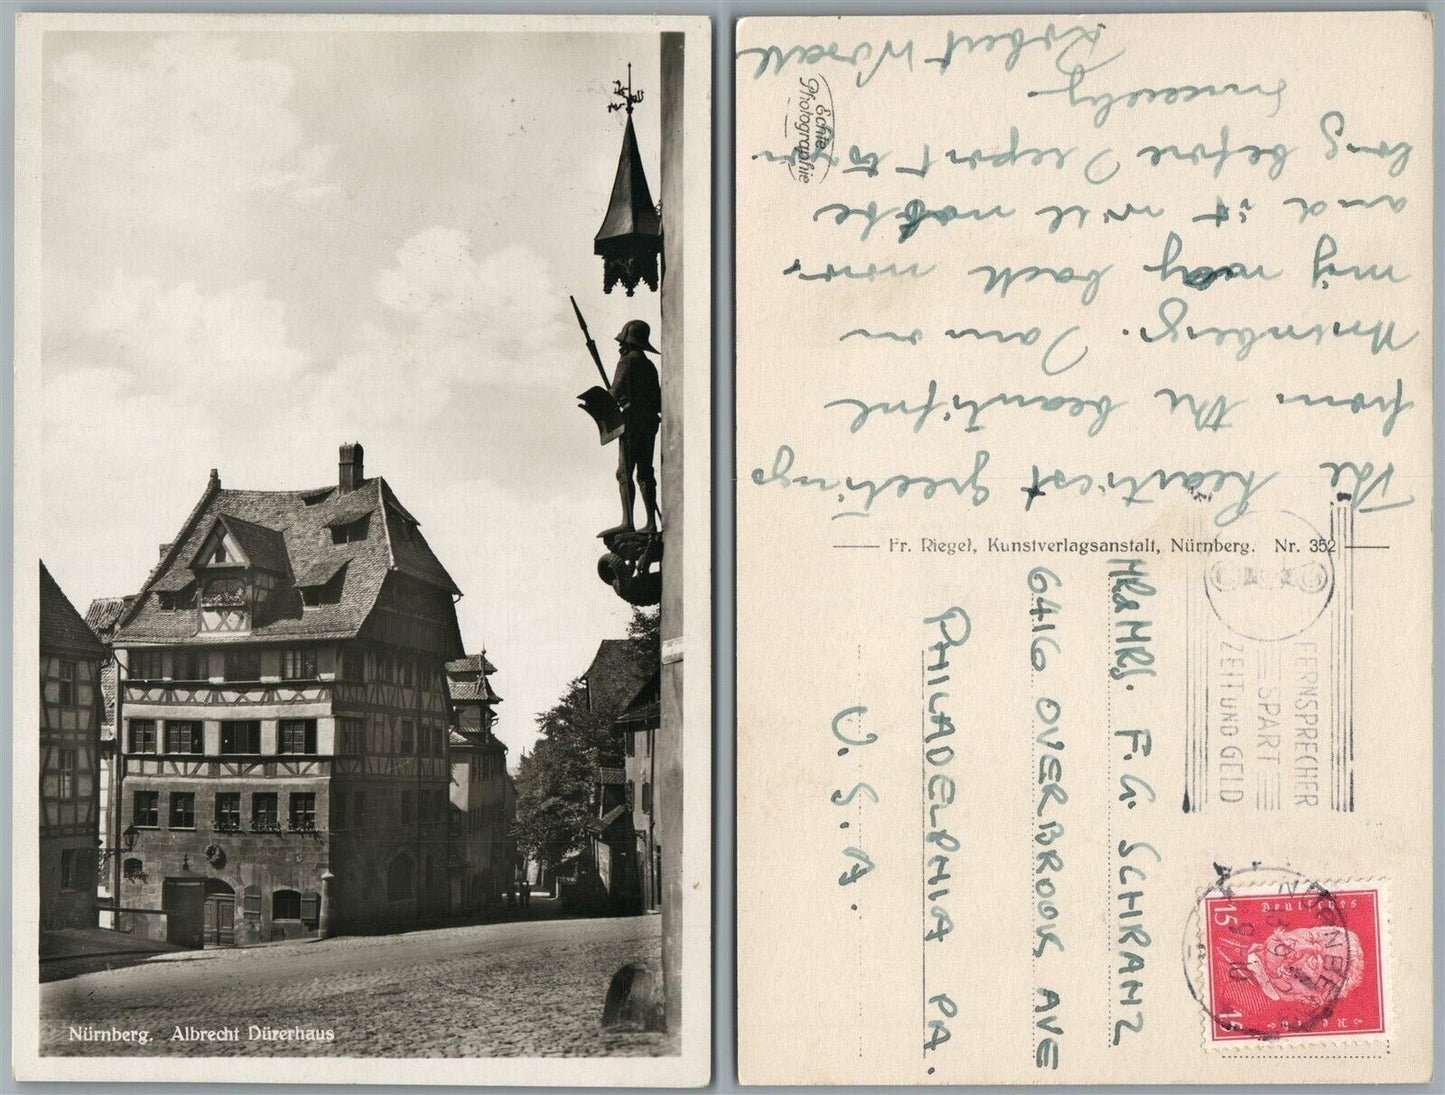 Nürnberg. Albrecht Dürerhaus
The heartiest greetings
from the beautiful
Nürnberg. I am on
my way back now
and it will not be
long before I report to you.
Sincerely
Robert
Echte
Photographie
Fr. Riegel, Kunstverlagsanstalt, Nürnberg. Nr. 352
MR & MRS. F. G. SCHRANZ
6416 OVERBROOK AVE
PHILADELPHIA PA.
U. S. A.
FERNSPRECHER
SPART
ZEIT UND GELD
NÜRNBERG
Deutsches
Reich
15
15